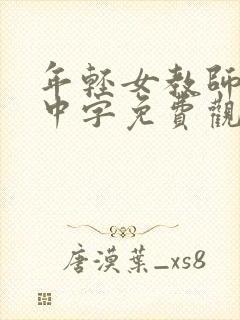 年輕女教師
中字免費觀
唐漠葉_xs8